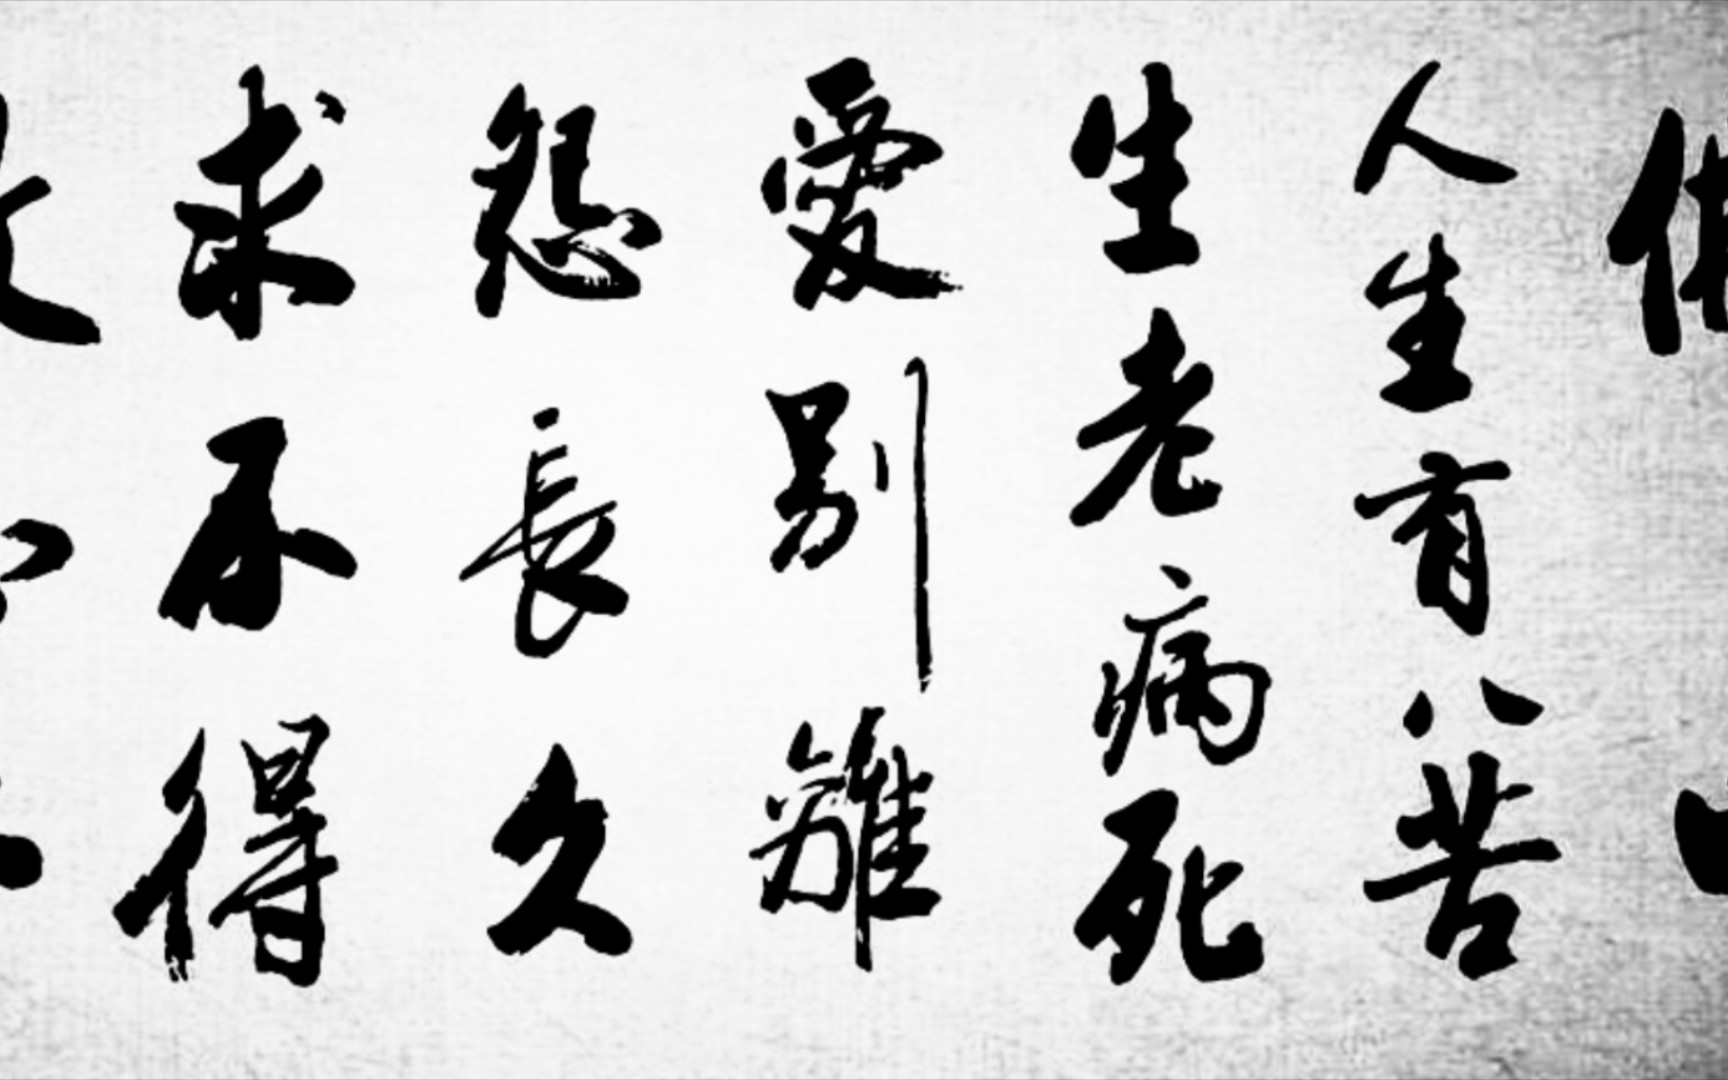 人生有八苦
生老病死
愛別離
怨長久
求不得